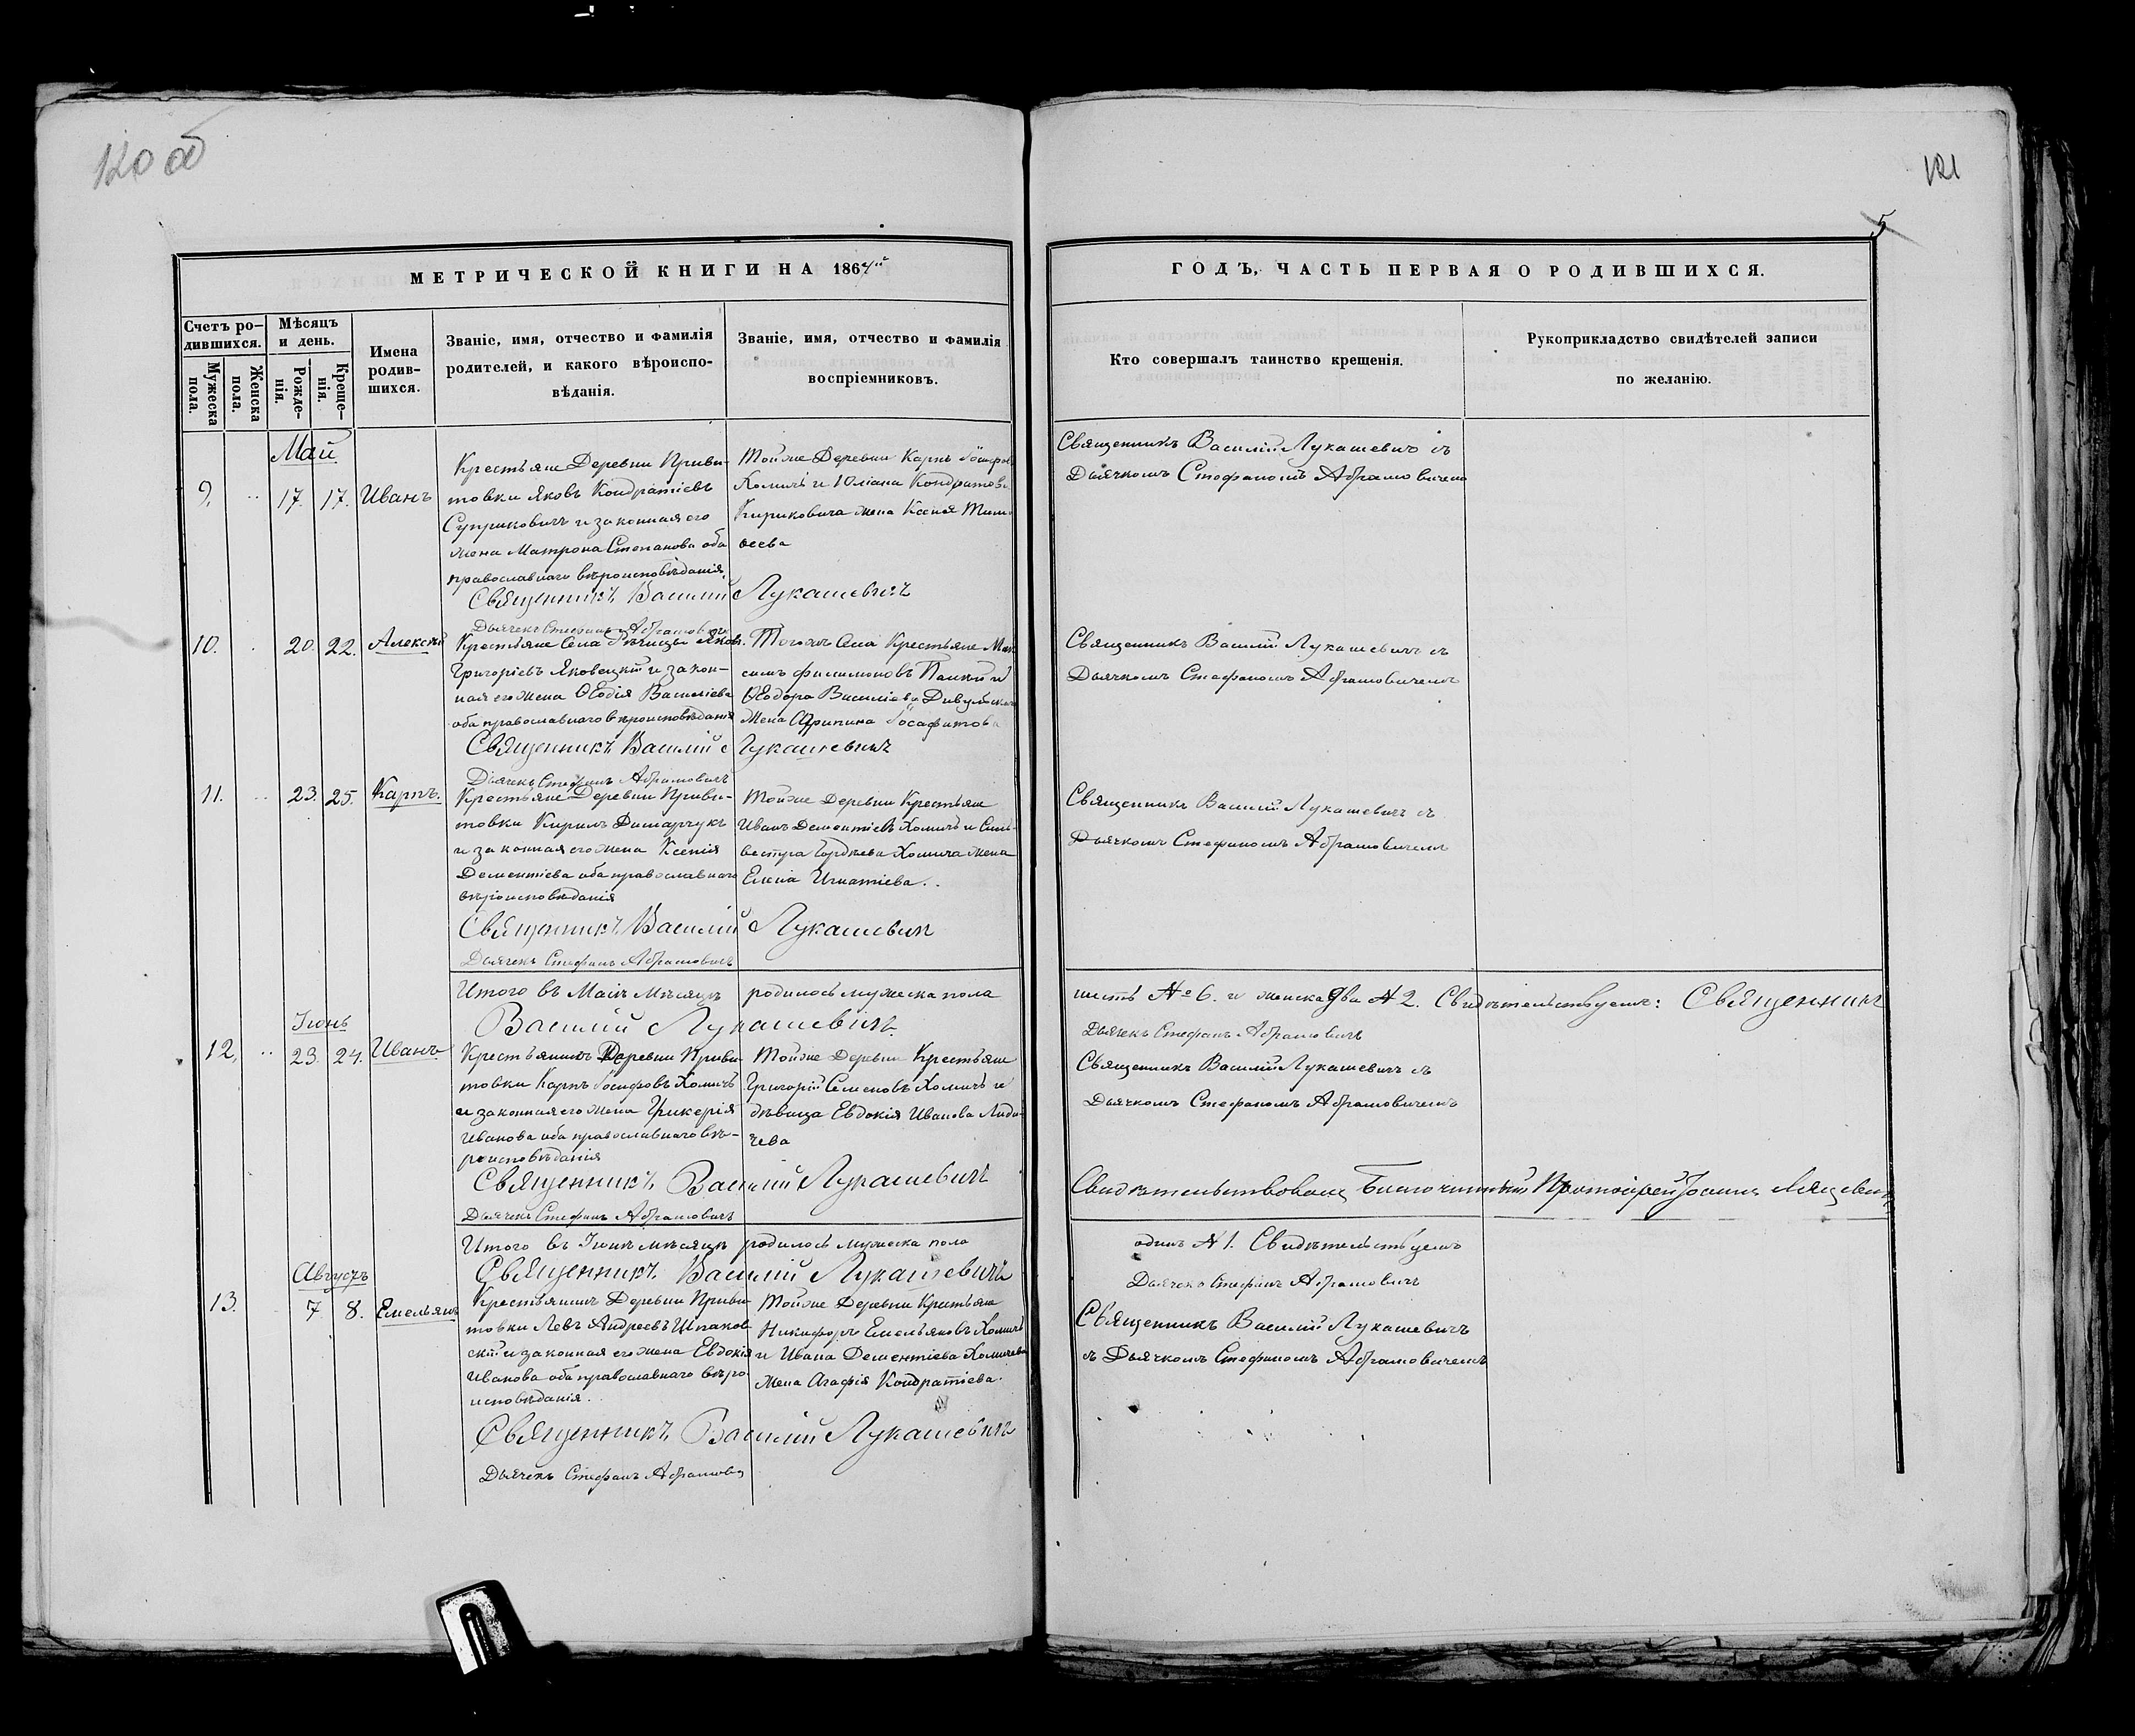 120 об
121
5
МЕТРИЧЕСКОЙ КНИГИ НА 1864ій
ГОДЪ, ЧАСТЬ ПЕРВАЯ О РОДИВШИХСЯ.
Счетъ ро-
дившихся.
Мужеска
пола.
Женска
пола.
Мѣсяцъ
и день.
Рожде-
нія.
Креще-
нія.
Имена
родив-
шихся.
Званіе, имя, отчество и фамилія
родителей, и какого вѣроиспо-
вѣданія.
Званіе, имя, отчество и фамилія
воспріемниковъ.
Кто совершалъ таинство крещенія.
Рукоприкладство свидѣтелей записи
по желанію.
Май
9, 17. 17. Иванъ
Крестьяне Деревни Приви-
товки Яковъ Кондратіевъ
Суприковичъ и законная его
жена Матрона Степанова оба
православнаго вѣроисповѣданія,
Тойже Деревни Карпъ Іосифов
Хомичъ и Юліана Кондратова
Кириковича жена Ксенія Тимо
ѳеева
Священникъ Василій Лукашевичъ съ
Дьячкомъ Стефаномъ Абрамовичемъ
Священникъ Василій Лукашевичъ
Дьячекъ Стефанъ Абрамовичъ
10. 20. 22. Алексѣй
Крестьяне Села Рѣчицы Яковъ
Григоріевъ Яковецкій и закон-
ная его жена Ѳеодія Василіева
оба православнаго вѣроисповѣданія
Тогоже Села Крестьяне Мак
симъ Филимоновъ Панкій и
Ѳеодора Василіева
жена Агрипина Іосафатова
Священникъ Василій Лукашевичъ съ
Дьячкомъ Стефаномъ Абрамовичемъ
Священникъ Василій Лукашевичъ
Дьячекъ Стефанъ Абрамовичъ
11. 23. 25. Карпъ.
Крестьяне Деревни Приви-
товки Кирилъ Димарчукъ
и законная его жена Ксенія
Дементіева оба православнаго
вѣроисповѣданія
Тойже Деревни Крестьяне
Иванъ Дементіевъ Хомичъ и Сил-
вестра Гордѣева Хомича жена
Елена Игнатіева.
Священникъ Василій Лукашевичъ съ
Дьячкомъ Стефаномъ Абрамовичемъ
Священникъ Василій Лукашевичъ
Дьячекъ Стефанъ Абрамовичъ
Итого въ Маѣ Мѣсяцѣ родилось мужеска пола шесть № 6. и женска два № 2. Свидѣтельствуемъ: Священникъ
Василій Лукашевичъ
Дьячекъ Стефанъ Абрамовичъ
Іюнь
12, 23. 24. Иванъ
Крестьянинъ Деревни Приви-
товки Карпъ Іосифовъ Хомичъ
и законная его жена Гликерія
Иванова оба православнаго вѣ-
роисповѣданія
Тойже Деревни Крестьяне
Григорій Семеновъ Хомичъ и
дѣвица Евдокія Иванова
чева
Священникъ Василій Лукашевичъ съ
Дьячкомъ Стефаномъ Абрамовичемъ
Священникъ Василій Лукашевичъ
Дьячекъ Стефанъ Абрамовичъ
Свидѣтельствовалъ Благочинный Протоіерей Іоаннъ
Итого въ Іюнѣ мѣсяцѣ родилось мужеска пола одинъ № 1. Свидѣтельствуемъ
Священникъ Василій Лукашевичъ
Дьячекъ Стефанъ Абрамовичъ
Августъ
13. 7 8. Емельянъ
Крестьянинъ Деревни Приви-
товки Левъ Андреевъ Шпаков
скій и законная его жена Евдокія
Иванова оба православнаго вѣро
исповѣданія.
Тойже Деревни Крестьяне
Никифоръ Емельяновъ Хомичъ
и Ивана Дементіева Хомичева
жена Агафія Кондратіева.
Священникъ Василій Лукашевичъ
съ Дьячкомъ Стефаномъ Абрамовичемъ
Священникъ Василій Лукашевичъ
Дьячекъ Стефанъ Абрамовъ